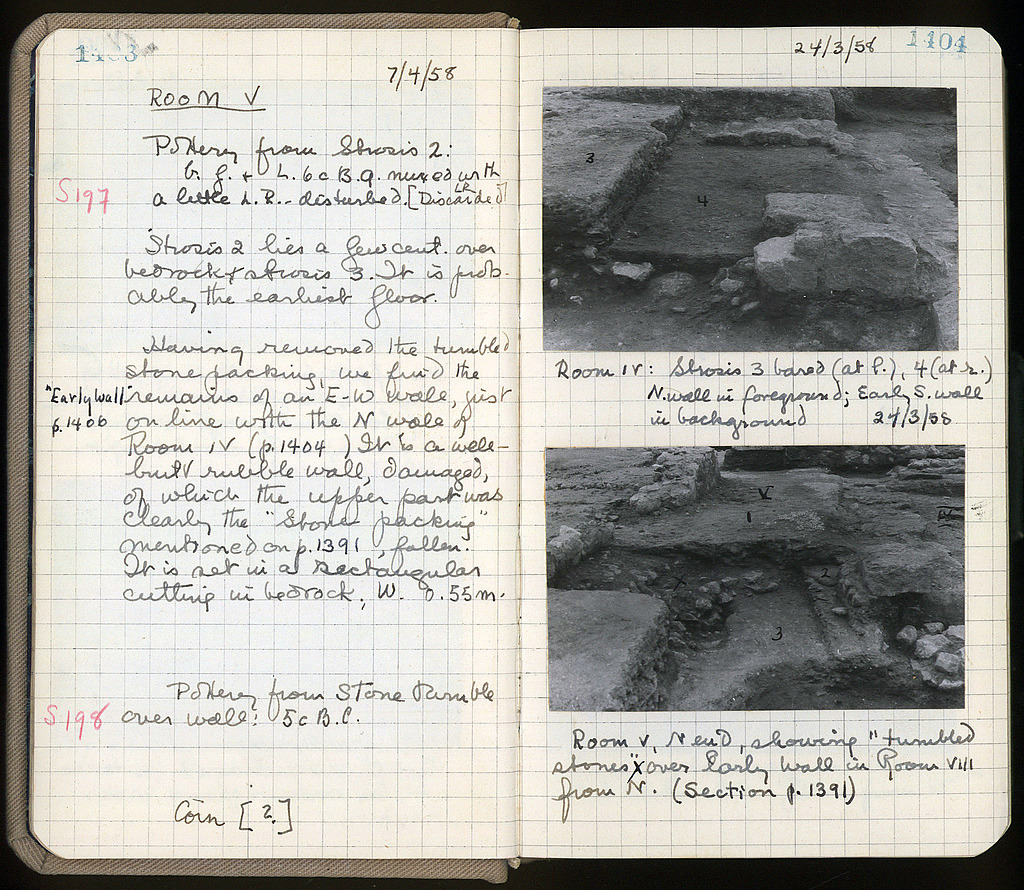 7/4/58
ROOM V
Pottery from Strosis 2:
b. g. + L. 6c B.C. mixed with
a little L. R. - disturbed. [LR Discarded]
S197
Strosis 2 lies a few cent. over
bedrock & strosis 3. It is prob-
ably the earliest floor.
Having removed the tumbled
stone packing, we find the
"Early Wall" remains of an E-W wall, just
p. 1406 on line with the N wall of
Room IV (p. 1404 ) It is a well-
built rubble wall, damaged,
of which the upper part was
clearly the "Stone packing"
mentioned on p. 1391, fallen.
It is set in a rectangular
cutting in bedrock, W. 0.55 m.
Pottery from Stone tumble
S198 over wall: 5c B.C.
Coin [2.]
24/3/58
1404
3
4
Room IV: Strosis 3 bared (at l.), 4 (at r.)
N. wall in foreground; Early S. wall
in background 24/3/58
V
1
IV
2
X
3
Room V, N end, showing "tumbled
stones" X over Early Wall in Room VIII
from N. (Section p. 1391)